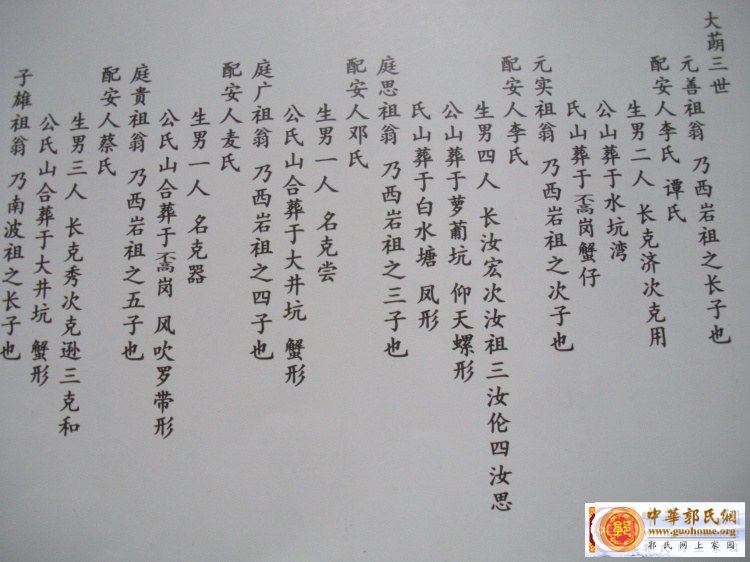 大萠三世
元善祖翁 乃西岩祖之长子也
配安人李氏 谭氏
生男二人 长克济次克用
公山葬于水坑湾
氏山葬于髙岗蟹仔
元实祖翁 乃西岩祖之次子也
配安人李氏
生男四人 长汝宏次汝祖三汝伦四汝思
公山葬于萝葡坑 仰天螺形
氏山葬于白水塘 凤形
庭思祖翁 乃西岩祖之三子也
配安人邓氏
生男一人 名克尝
公氏山合葬于大井坑 蟹形
庭广祖翁 乃西岩祖之四子也
配安人麦氏
生男一人 名克器
公氏山合葬于髙岗 风吹罗带形
庭贵祖翁 乃西岩祖之五子也
配安人蔡氏
生男三人 长克秀次克逊三克和
公氏山合葬于大井坑 蟹形
子雄祖翁 乃南波祖之长子也
中華郭氏網
www.guohome.org
郭氏网上家园